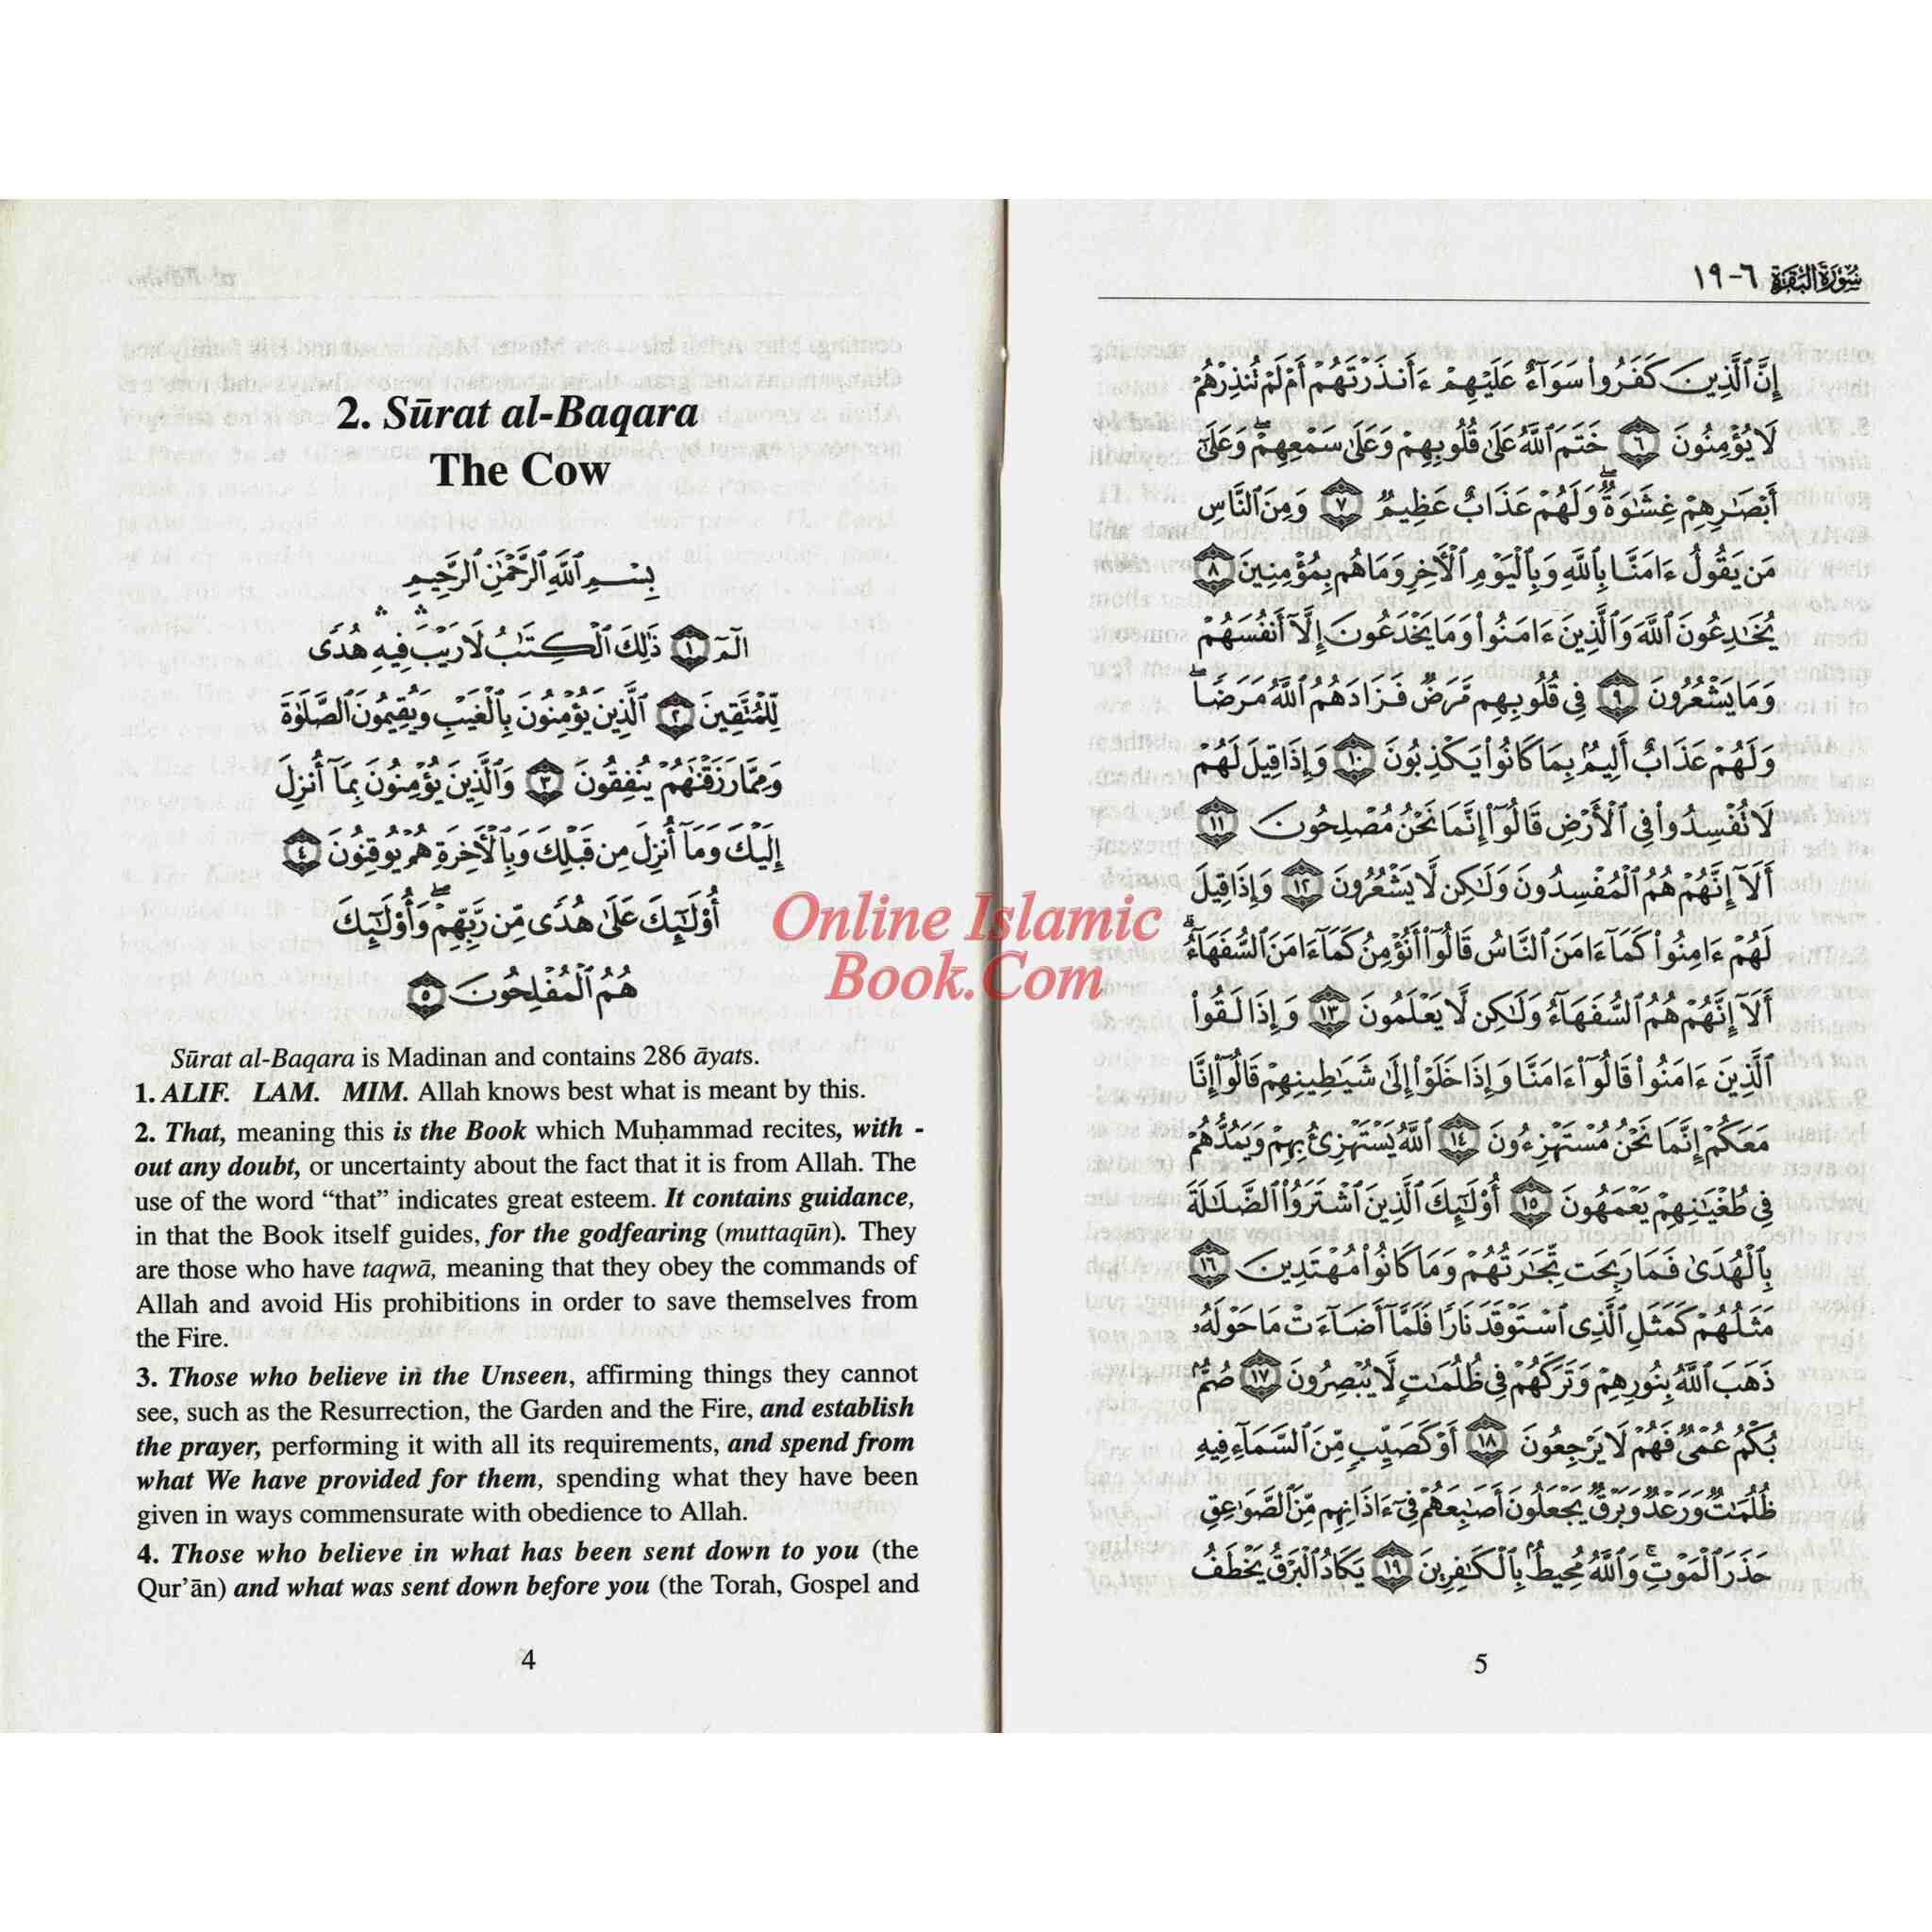 2. Sūrat al-Baqara
The Cow
بِسْمِ ٱللَّهِ ٱلرَّحْمَٰنِ ٱلرَّحِيمِ
الٓمٓ ١ ذَٰلِكَ ٱلْكِتَٰبُ لَا رَيْبَ ۛ فِيهِ ۛ هُدًى
لِّلْمُتَّقِينَ ٢ ٱلَّذِينَ يُؤْمِنُونَ بِٱلْغَيْبِ وَيُقِيمُونَ ٱلصَّلَوٰةَ
وَمِمَّا رَزَقْنَٰهُمْ يُنفِقُونَ ٣ وَٱلَّذِينَ يُؤْمِنُونَ بِمَآ أُنزِلَ
إِلَيْكَ وَمَآ أُنزِلَ مِن قَبْلِكَ وَبِٱلْأَخِرَةِ هُمْ يُوقِنُونَ ٤
أُو۟لَٰٓئِكَ عَلَىٰ هُدًى مِّن رَّبِّهِمْ ۖ وَأُو۟لَٰٓئِكَ
هُمُ ٱلْمُفْلِحُونَ ٥
Sūrat al-Baqara is Madinan and contains 286 āyats.
1. ALIF. LAM. MIM. Allah knows best what is meant by this.
2. That, meaning this is the Book which Muḥammad recites, with -
out any doubt, or uncertainty about the fact that it is from Allah. The
use of the word “that” indicates great esteem. It contains guidance,
in that the Book itself guides, for the godfearing (muttaqūn). They
are those who have taqwā, meaning that they obey the commands of
Allah and avoid His prohibitions in order to save themselves from
the Fire.
3. Those who believe in the Unseen, affirming things they cannot
see, such as the Resurrection, the Garden and the Fire, and establish
the prayer, performing it with all its requirements, and spend from
what We have provided for them, spending what they have been
given in ways commensurate with obedience to Allah.
4. Those who believe in what has been sent down to you (the
Qur’ān) and what was sent down before you (the Torah, Gospel and
4
Online Islamic
Book.Com
سُورَةُ البَقَرَة ٦-١٩
إِنَّ ٱلَّذِينَ كَفَرُوا۟ سَوَآءٌ عَلَيْهِمْ ءَأَنذَرْتَهُمْ أَمْ لَمْ تُنذِرْهُمْ
لَا يُؤْمِنُونَ ٦ خَتَمَ ٱللَّهُ عَلَىٰ قُلُوبِهِمْ وَعَلَىٰ سَمْعِهِمْ ۖ وَعَلَىٰٓ
أَبْصَٰرِهِمْ غِشَٰوَةٌ ۖ وَلَهُمْ عَذَابٌ عَظِيمٌ ٧ وَمِنَ ٱلنَّاسِ
مَن يَقُولُ ءَامَنَّا بِٱللَّهِ وَبِٱلْيَوْمِ ٱلْأَخِرِ وَمَا هُم بِمُؤْمِنِينَ ٨
يُخَٰدِعُونَ ٱللَّهَ وَٱلَّذِينَ ءَامَنُوا۟ وَمَا يَخْدَعُونَ إِلَّآ أَنفُسَهُمْ
وَمَا يَشْعُرُونَ ٩ فِى قُلُوبِهِم مَّرَضٌ فَزَادَهُمُ ٱللَّهُ مَرَضًا ۖ
وَلَهُمْ عَذَابٌ أَلِيمٌۢ بِمَا كَانُوا۟ يَكْذِبُونَ ١٠ وَإِذَا قِيلَ لَهُمْ
لَا تُفْسِدُوا۟ فِى ٱلْأَرْضِ قَالُوٓا۟ إِنَّمَا نَحْنُ مُصْلِحُونَ ١١
أَلَآ إِنَّهُمْ هُمُ ٱلْمُفْسِدُونَ وَلَٰكِن لَّا يَشْعُرُونَ ١٢ وَإِذَا قِيلَ
لَهُمْ ءَامِنُوا۟ كَمَآ ءَامَنَ ٱلنَّاسُ قَالُوٓا۟ أَنُؤْمِنُ كَمَآ ءَامَنَ ٱلسُّفَهَآءُ ۗ
أَلَآ إِنَّهُمْ هُمُ ٱلسُّفَهَآءُ وَلَٰكِن لَّا يَعْلَمُونَ ١٣ وَإِذَا لَقُوا۟
ٱلَّذِينَ ءَامَنُوا۟ قَالُوٓا۟ ءَامَنَّا وَإِذَا خَلَوْا۟ إِلَىٰ شَيَٰطِينِهِمْ قَالُوٓا۟ إِنَّا
مَعَكُمْ إِنَّمَا نَحْنُ مُسْتَهْزِءُونَ ١٤ ٱللَّهُ يَسْتَهْزِئُ بِهِمْ وَيَمُدُّهُمْ
فِى طُغْيَٰنِهِمْ يَعْمَهُونَ ١٥ أُو۟لَٰٓئِكَ ٱلَّذِينَ ٱشْتَرَوُا۟ ٱلضَّلَٰلَةَ
بِٱلْهُدَىٰ فَمَا رَبِحَت تِّجَٰرَتُهُمْ وَمَا كَانُوا۟ مُهْتَدِينَ ١٦
مَثَلُهُمْ كَمَثَلِ ٱلَّذِى ٱسْتَوْقَدَ نَارًا فَلَمَّآ أَضَآءَتْ مَا حَوْلَهُۥ
ذَهَبَ ٱللَّهُ بِنُورِهِمْ وَتَرَكَهُمْ فِى ظُلُمَٰتٍ لَّا يُبْصِرُونَ ١٧ صُمٌّۢ
بُكْمٌ عُمْىٌ فَهُمْ لَا يَرْجِعُونَ ١٨ أَوْ كَصَيِّبٍ مِّنَ ٱلسَّمَآءِ فِيهِ
ظُلُمَٰتٌ وَرَعْدٌ وَبَرْقٌ يَجْعَلُونَ أَصَٰبِعَهُمْ فِىٓ ءَاذَانِهِم مِّنَ ٱلصَّوَٰعِقِ
حَذَرَ ٱلْمَوْتِ ۚ وَٱللَّهُ مُحِيطٌۢ بِٱلْكَٰفِرِينَ ١٩ يَكَادُ ٱلْبَرْقُ يَخْطَفُ
5